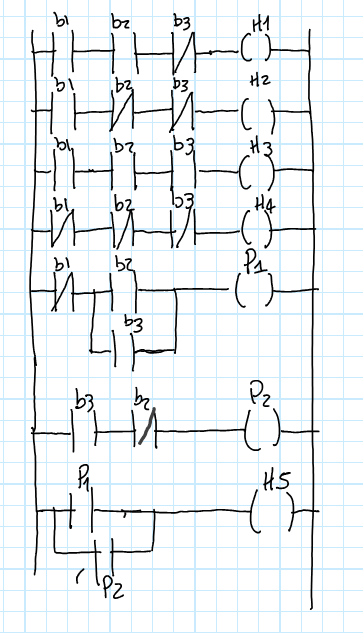 b1 b2 b3 H1
b1 b2 b3 H2
b1 b2 b3 H3
b1 b2 b3 H4
b1 b2 P1
b3
b3 b2 P2
P1 H5
P2